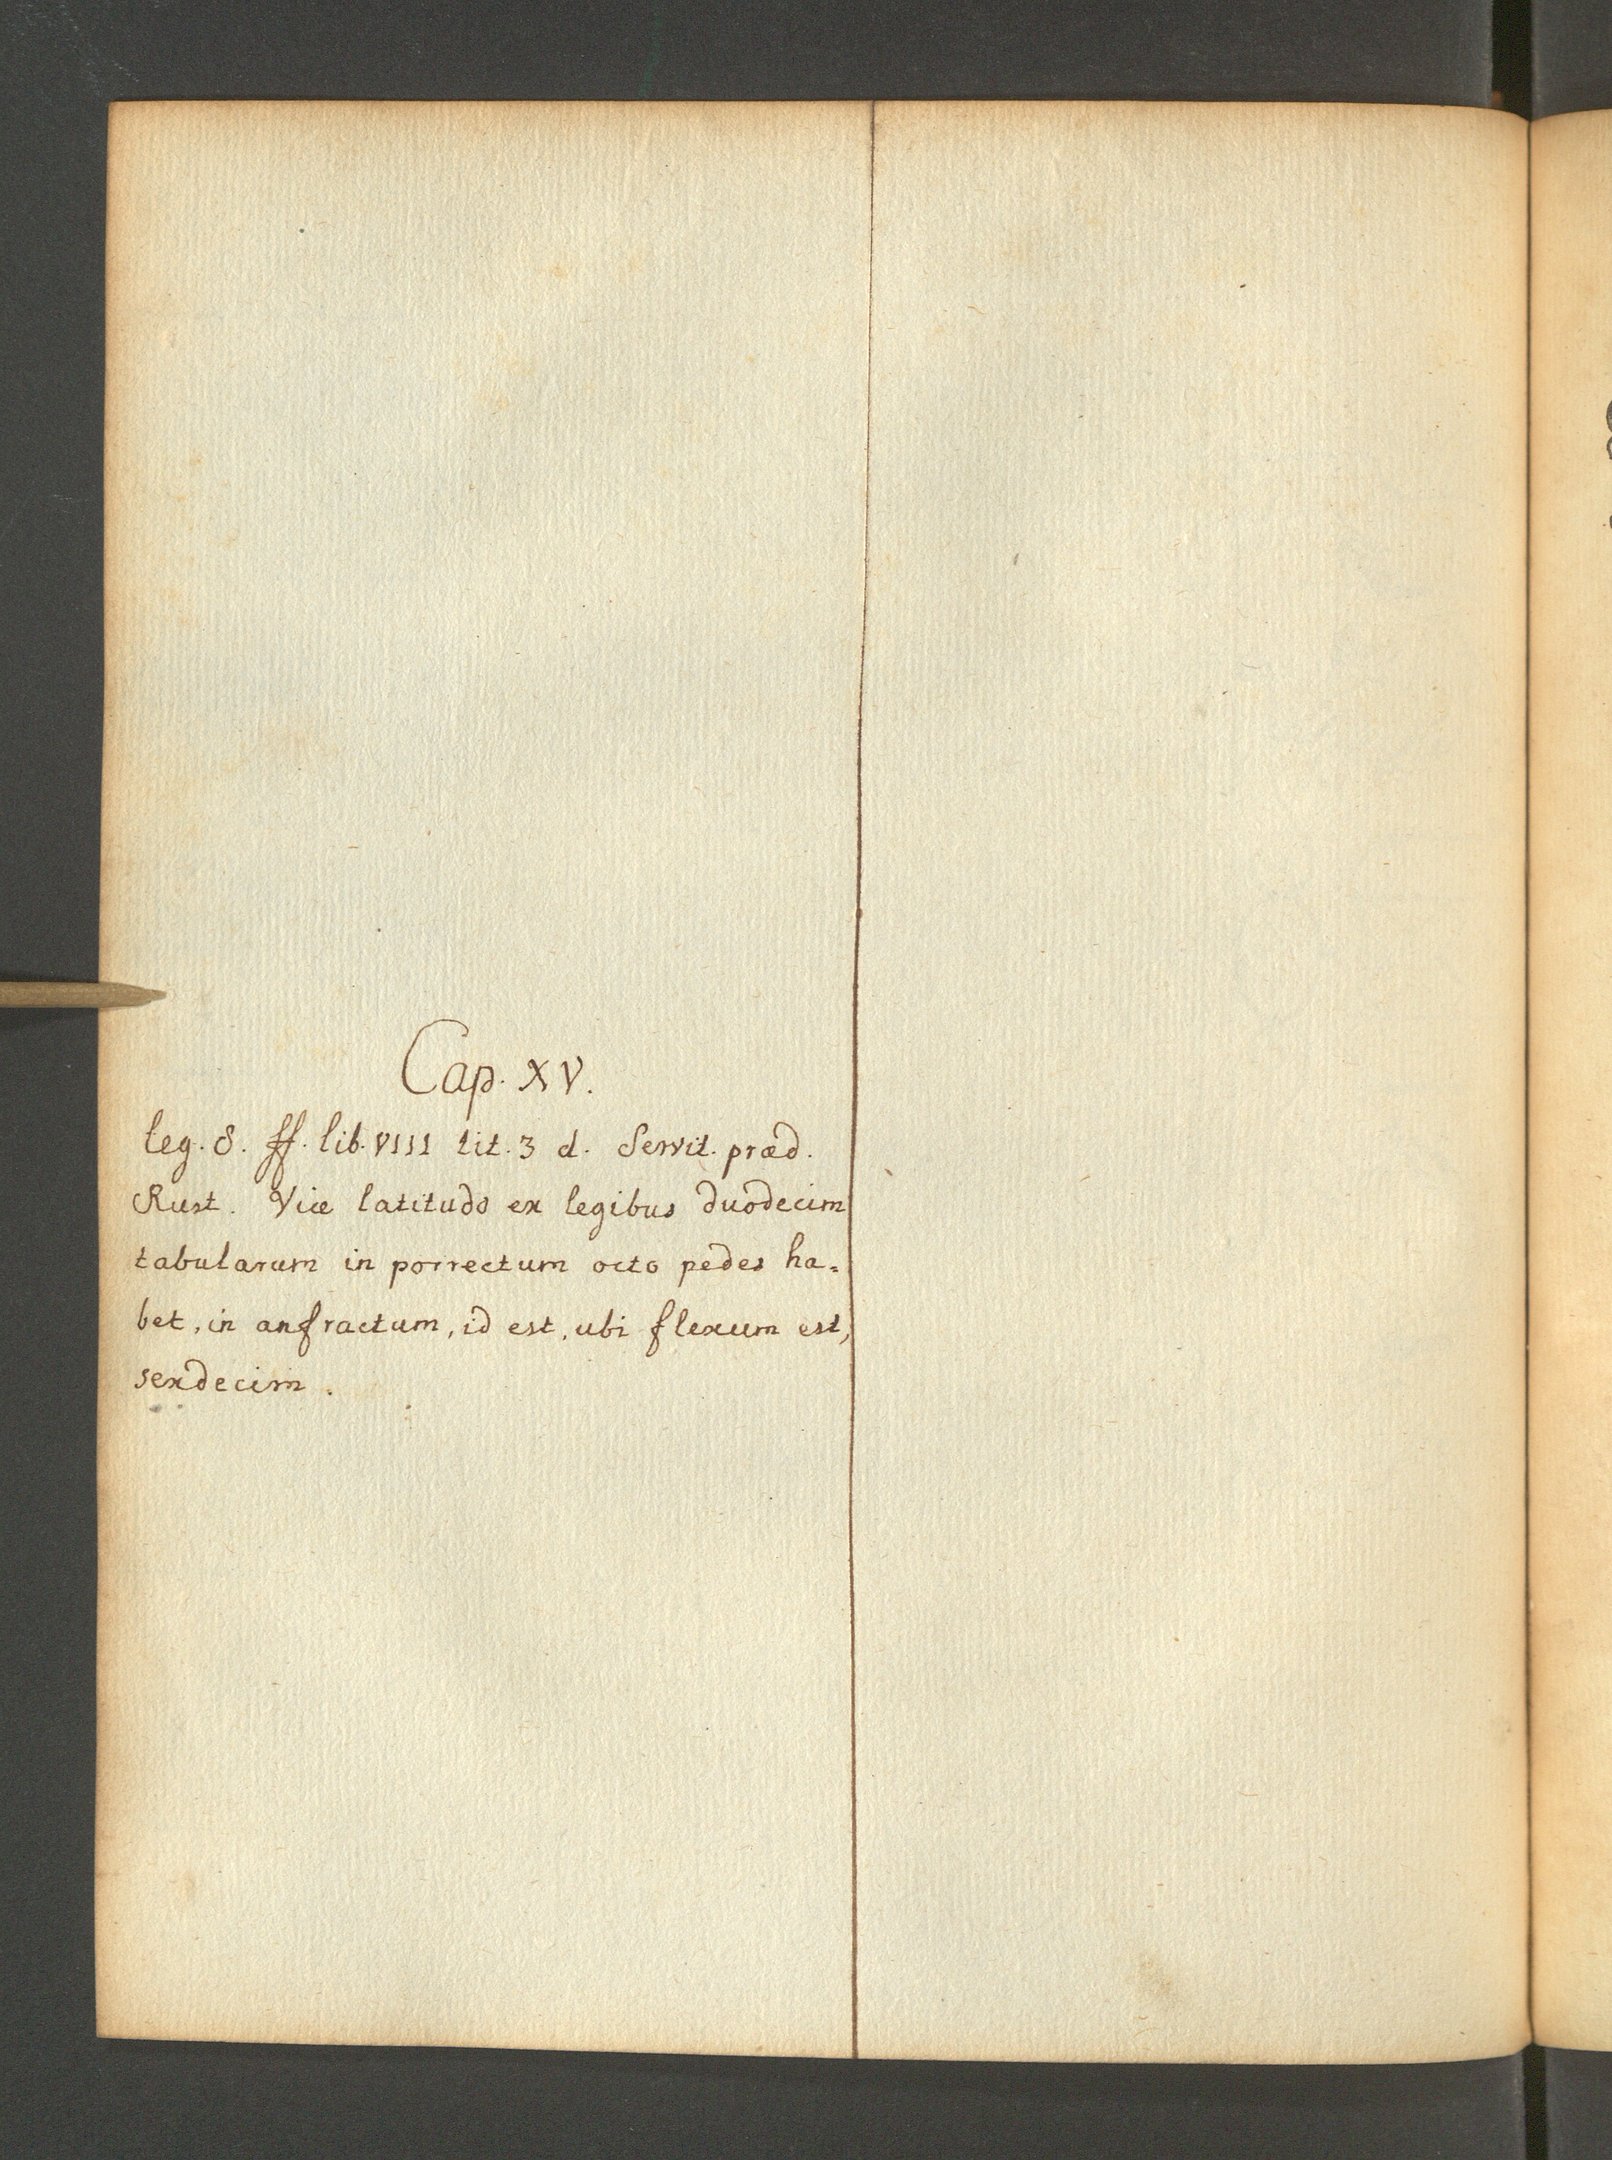 Cap. XV.
leg. 8. ff. lib. VIII tit. 3 d. Servit. præd.
Rust. Viæ latitudo ex legibus duodecim
tabularum in porrectum octo pedes ha=
bet, in anfractum, id est, ubi flexum est,
sexdecim.